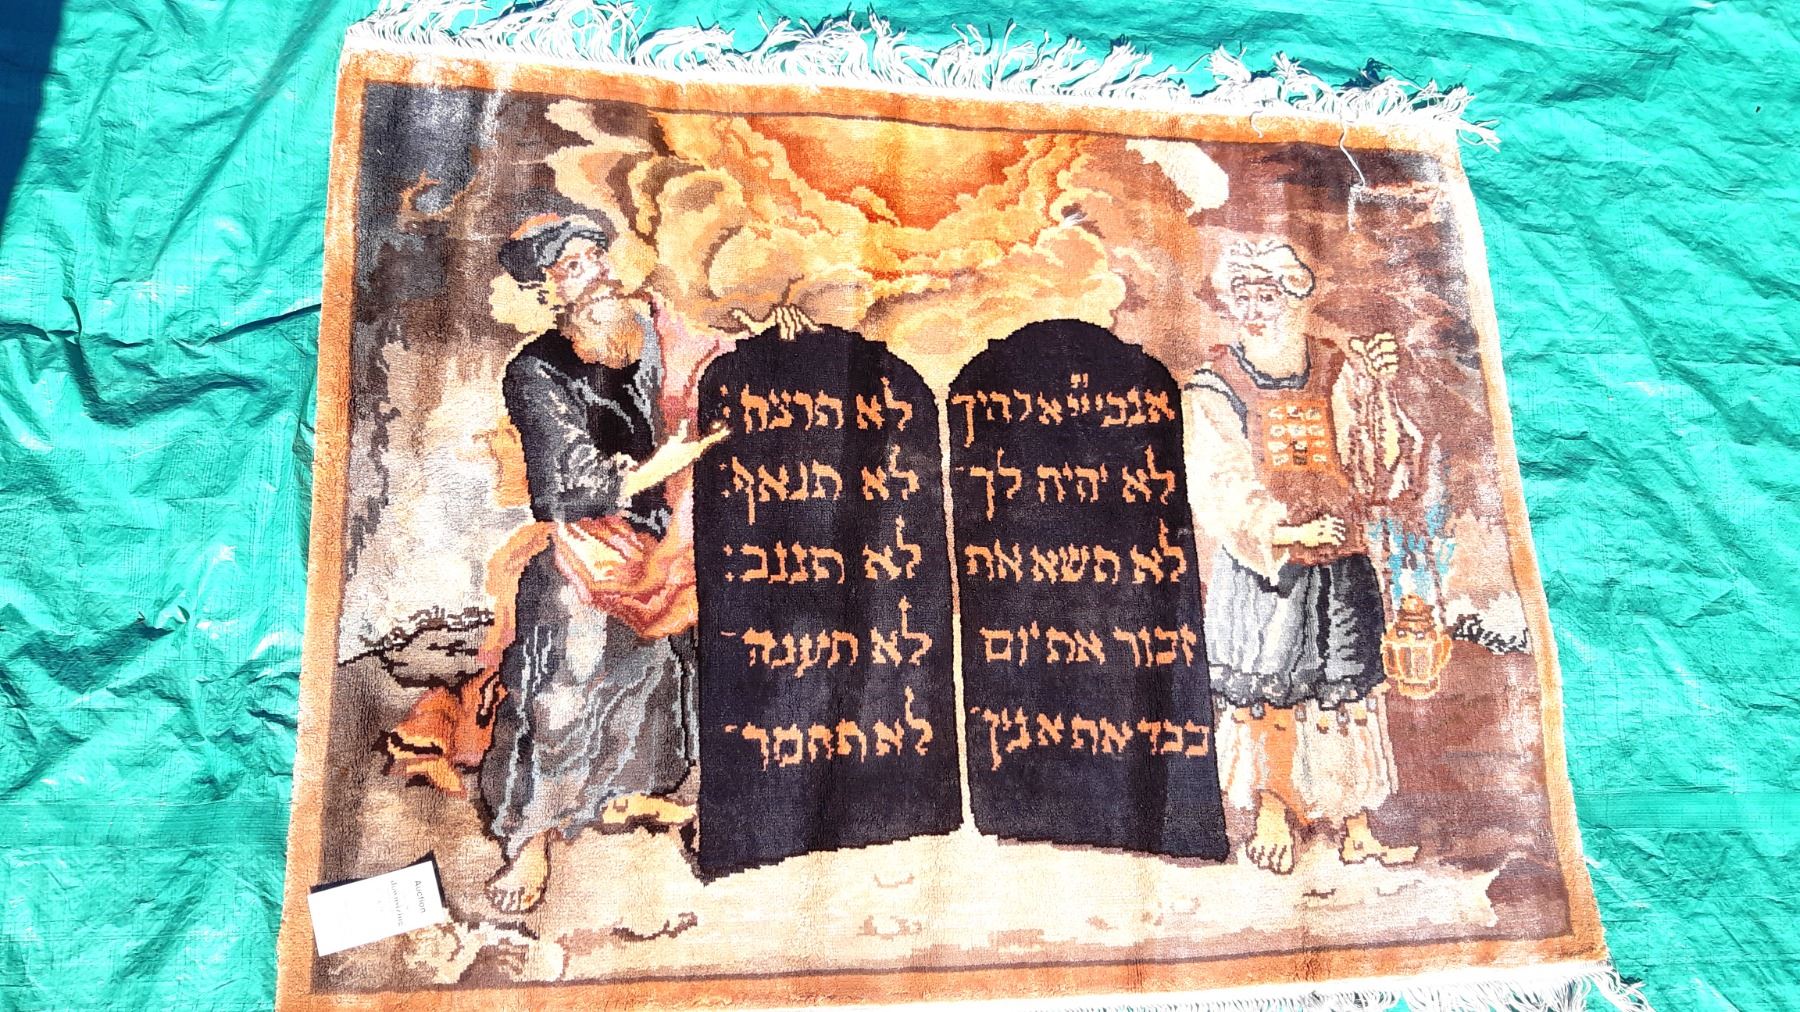 אנכי ייי אלהיך
לא יהיה לך
לא תשא את
זכור את יום
כבד את אביך
לא תרצח:
לא תנאף:
לא תגנב:
לא תענה
לא תחמד
Auction